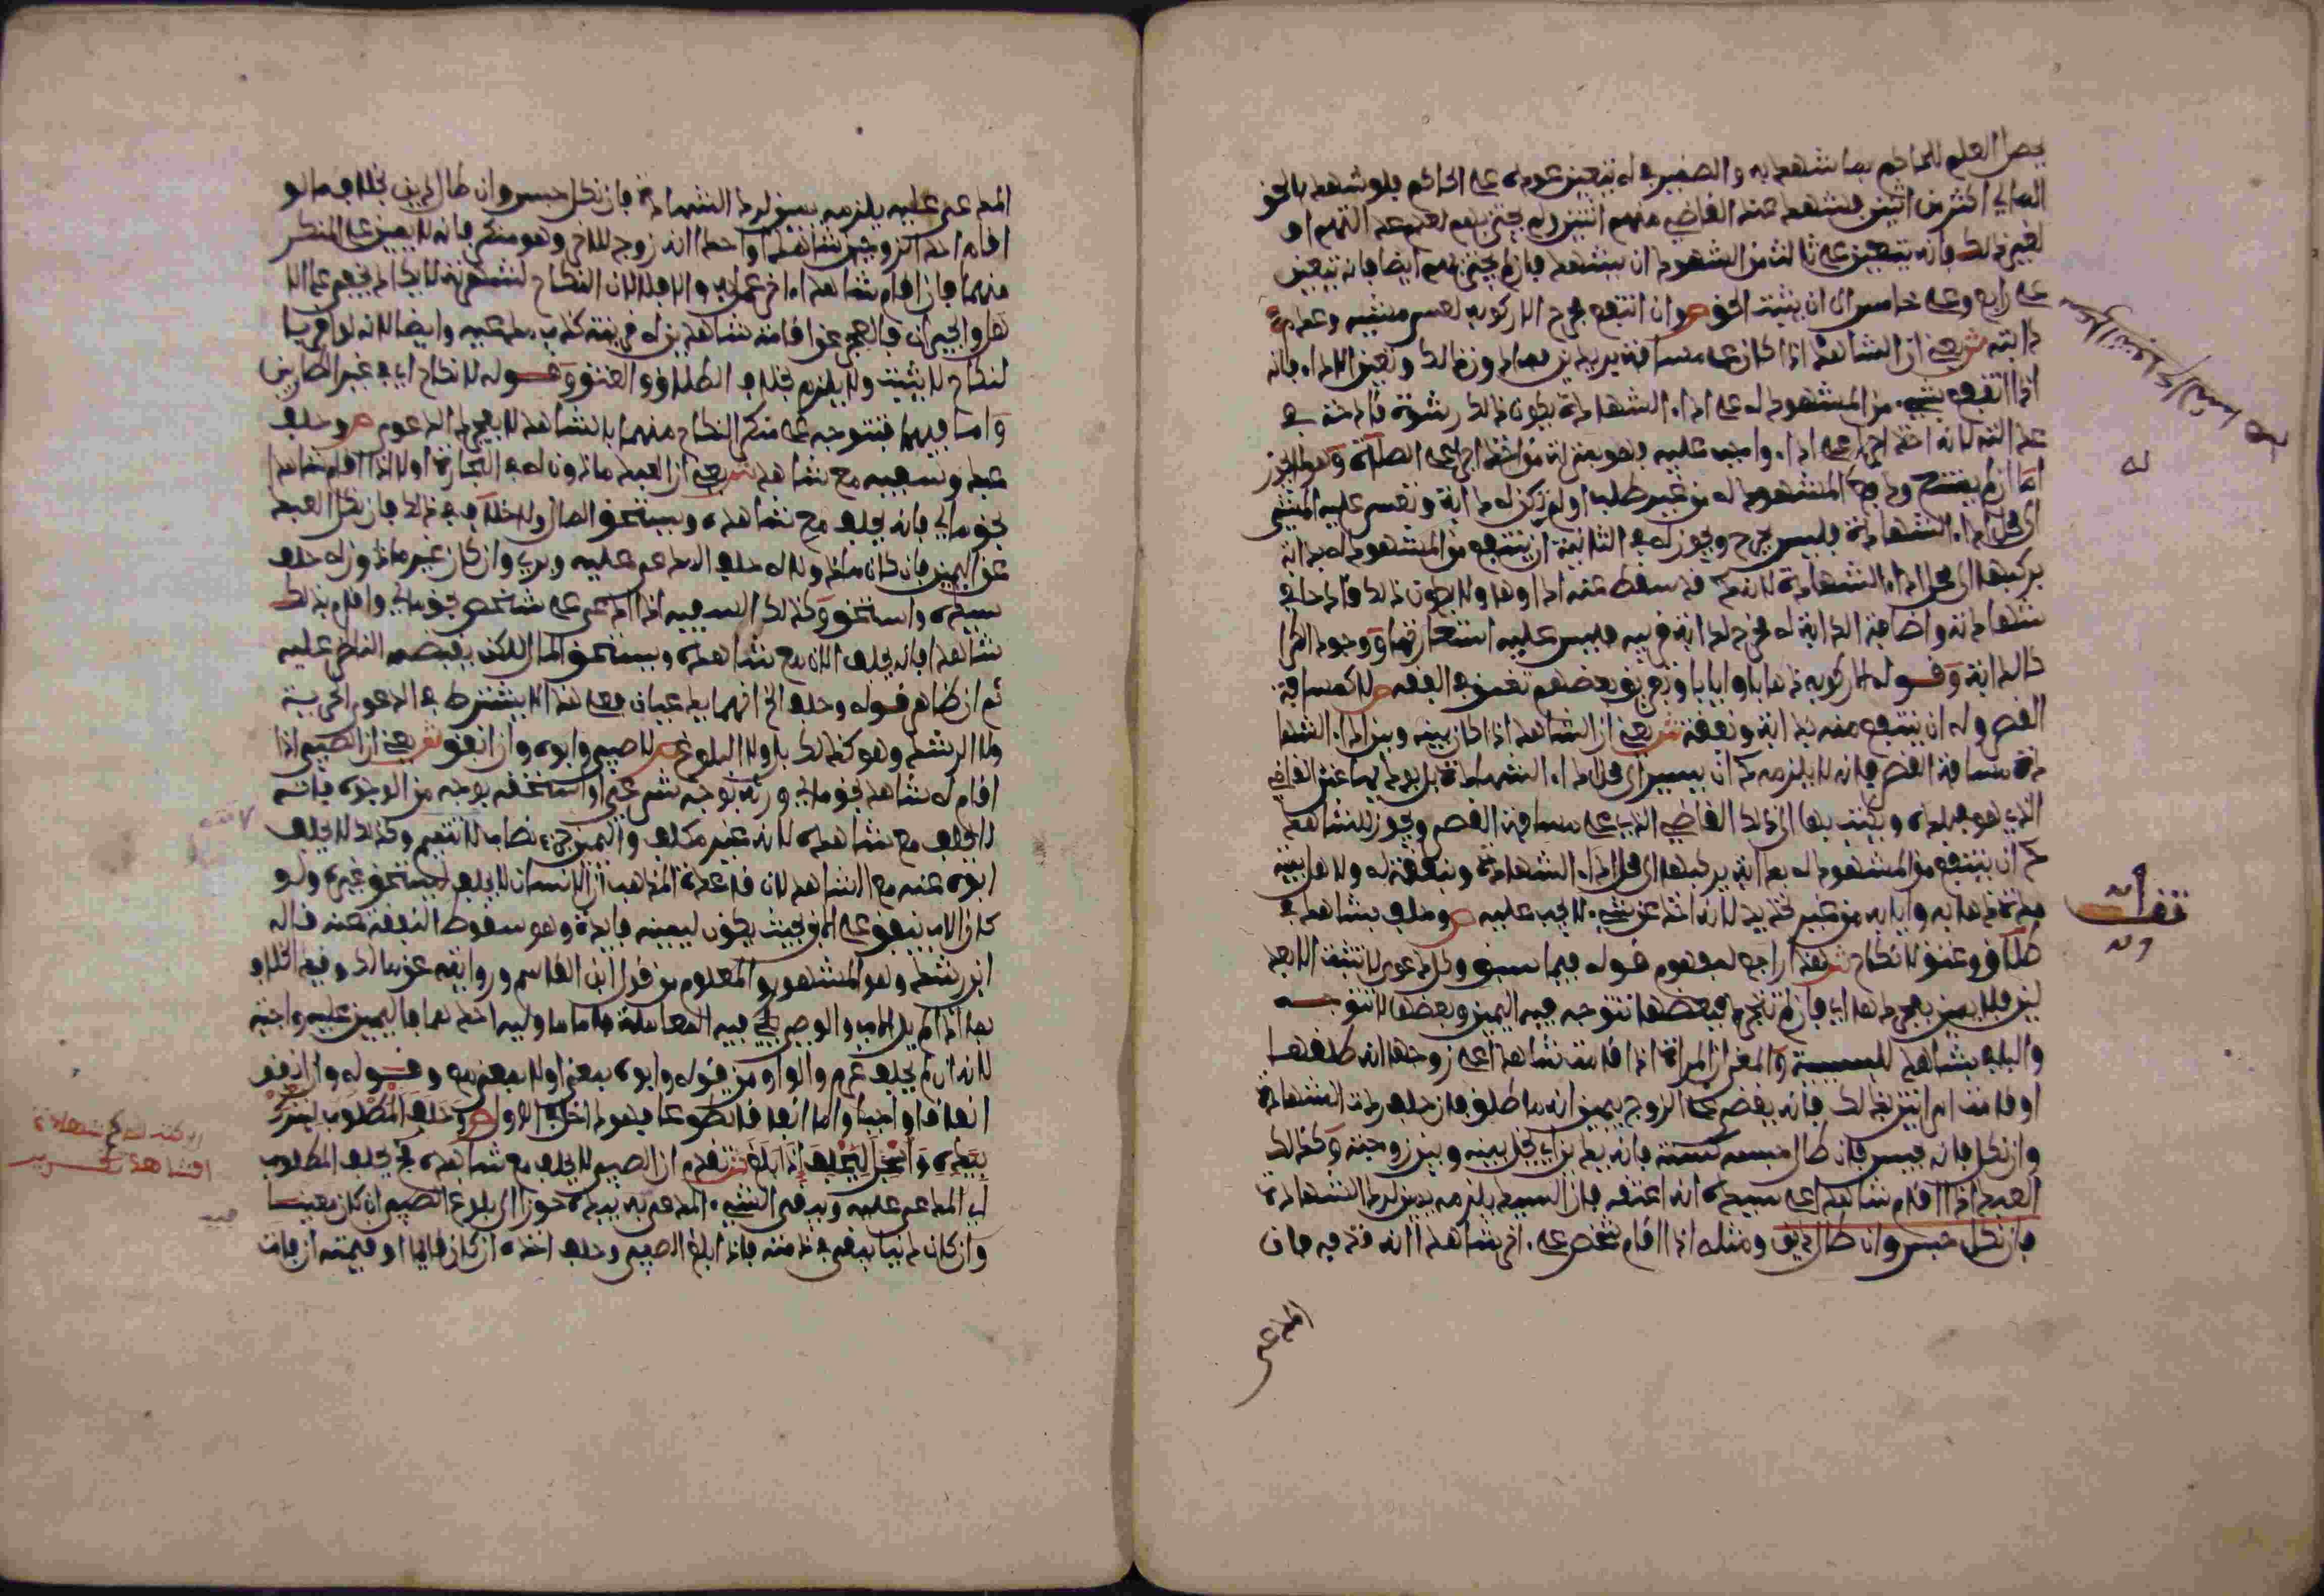 يحصل العلم للحاكم بما شهد به والضمير في له يتعين عوده على الحاكم فلو شهد بالحق
المالي اكثر من اثنين فشهد عند القاضي منهم اثنين ولم يجتز بهم لعدم عدالتهم او
لغير ذلك فانه يتعين على ثالث من الشهود ان يشهد فان لم يجتز بهم ايضا فانه يتعين
على رابع وعلى خامس الى ان يثبت الحق ص وان انتفع فجرح الا ركوبه لعسر مشيه وعدم
دابته ش يعني ان الشاهد اذا كان على مسافة بريدين فما دون ذلك وتعين الاداء فانه
اذا انتفع بشيء من المشهود له على اداء الشهادة يكون ذلك رشوة قادحة في
عدالته لانه اخذ اجرا على اداء واجب عليه فهو بمنزلة من اخذ اجرا على الصلاة وهو الجزر
اما ان لم ينتفع ودفع المشهود له من غير طلب او لم تكن له دابة وتعسر عليه المشي
الى محل اداء الشهادة فليس بجرح ويجوز له في الثانية ان ينتفع من المشهود له بدابة
يركبها الى محل اداء الشهادة لانه قد سقط عنه اداوها ولا يكون ذلك قادحا في
شهادته واضافة الدابة له مخرج لدابة قريبه فليس عليه استعارتها ووجود الكرا
كالدابة وقوله الا ركوبه ذهابا وايابا وتعريف بعضهم تعسف في الفقه ص لا كمسافة
القصر وله ان ينتفع منه بدابة ونفقة ش يعني ان الشاهد اذا كان بينه وبين اداء الشها
دة مسافة القصر فانه لا يلزمه ان يسير الى محل اداء الشهادة بل يوديها عند القاضي
الذي هو ببلده ويكتب بها الى ذلك القاضي الذي على مسافة القصر ويجوز للشاهد
ان ينتفع من المشهود له بدابة يركبها الى محل اداء الشهادة ونفقة له ولاهل بيته
مدة ذهابه وايابه من غير تحديد لانه اخذ عن شيء لا يجب عليه ص وحلف بشاهد في
طلاق وعتق لا نكاح ش هذا راجع لمفهوم قوله فيما سبق وكل دعوى لا تثبت الا بعد
لين فلا يمين بمجردها اي فان لم تتجرد فبعضها تتوجه فيه اليمين وبعضها لا تتوجه
والباء بشاهد للسببية والمعنى ان المراة اذا اقامت شاهدا على زوجها انه طلقها
او قامت امراتين بذلك فانه يقضى على الزوج بيمين انه ما طلق فان حلف ردت الشهادة
وان نكل فانه يحبس فان طال حبسه كسنة فانه يدين اي يخلى بينه وبين زوجته وكذلك
العبد اذا اقام شاهدا على سيده انه اعتقه فان السيد يلزمه يمين لرد الشهادة
فان نكل حبس وان طال دين ومثله اذا اقام شخص على اخر شاهدا انه قذفه فان
المدعى
له
تقف انه
المدعى عليه يلزمه يمين لرد الشهادة فان نكل حبس وان طال دين بخلاف ما لو
اقام احد الزوجين شاهدا واحدا انه زوج للاخر وهو منكر فانه لا يمين على المنكر
منهما فان اقام شاهدا اخر عمل به والا فلا لان النكاح لشهرته لا يكاد يخفى على الا
هل والجيران فالعجز عن اقامة شاهدين له قرينة كذب مدعيه وايضا لانه لو اقر با
لنكاح لا يثبت ولا يلزم بخلاف الطلاق والعتق وقوله لا نكاح اي في غير الطارين
واما فيهما فتتوجه على منكر النكاح منهما بالشاهد لا بمجرد الدعوى ص وحلف
عبد وسفيه مع شاهد ش يعني ان العبد ماذون له في التجارة او لا اذا اقام شاهدا
بحق مالي فانه يحلف مع شاهده ويستحق المال ولا خلاف في ذلك فان نكل العبد
عن اليمين فان كان ماذونا له حلف المدعى عليه وبري وان كان غير ماذون له حلف
سيده واستحق وكذلك السفيه اذا ادعى على شخص بحق مالي واقام بذلك
شاهدا فانه يحلف الان مع شاهده ويستحق المال لكن يقبضه الناظر عليه
ثم ان ظاهر قوله وحلف الخ انهما يدعيان فعلى هذا لا يشترط في الدعوى الحرية
ولا الرشد وهو كذلك بل ولا البلوغ ص لا صبي وابوه وان انفق ش يعني ان الصبي اذا
اقام له شاهد بحق مالي ورثه بوجه شرعي او استحقه بوجه من الوجوه فانه
لا يحلف مع شاهده لانه غير مكلف واليمين جزء نصاب لا تتم وكذلك لا يحلف
ابوه عنه مع الشاهد لان قاعدة المذهب ان الانسان لا يحلف ليستحق غيره ولو
كان الاب ينفق على الابن بحيث يكون ليمينه فايدة وهو سقوط النفقة عنه قاله
ابن رشد وهو المشهور والمعلوم من قول ابن القاسم وروايته عن مالك وفيه الخلاف
هذا اذا لم يل الاب والوصي فيه المعاملة فاما ما وليه احدهما فاليمين عليه واجبة
لانه ان لم يحلف غرم والواو من قوله وابوه بمعنى او لا بمعنى مع وقوله وان انفق
انفاقا واجبا واما انفاقا تطوعا فهو داخل في الاول ص وحلف المطلوب ليترك
بيده واسجل ليحلف اذا بلغ ش تقدم ان الصبي لا يحلف مع شاهده ثم يحلف المطلوب
اي المدعى عليه ويبقى الشيء المدعى به بيده حوزا الى بلوغ الصبي ان كان معينا
وان كان دينا يبقى في ذمته فاذا بلغ الصبي وحلف اخذه ان كان قايما او قيمته ان فات